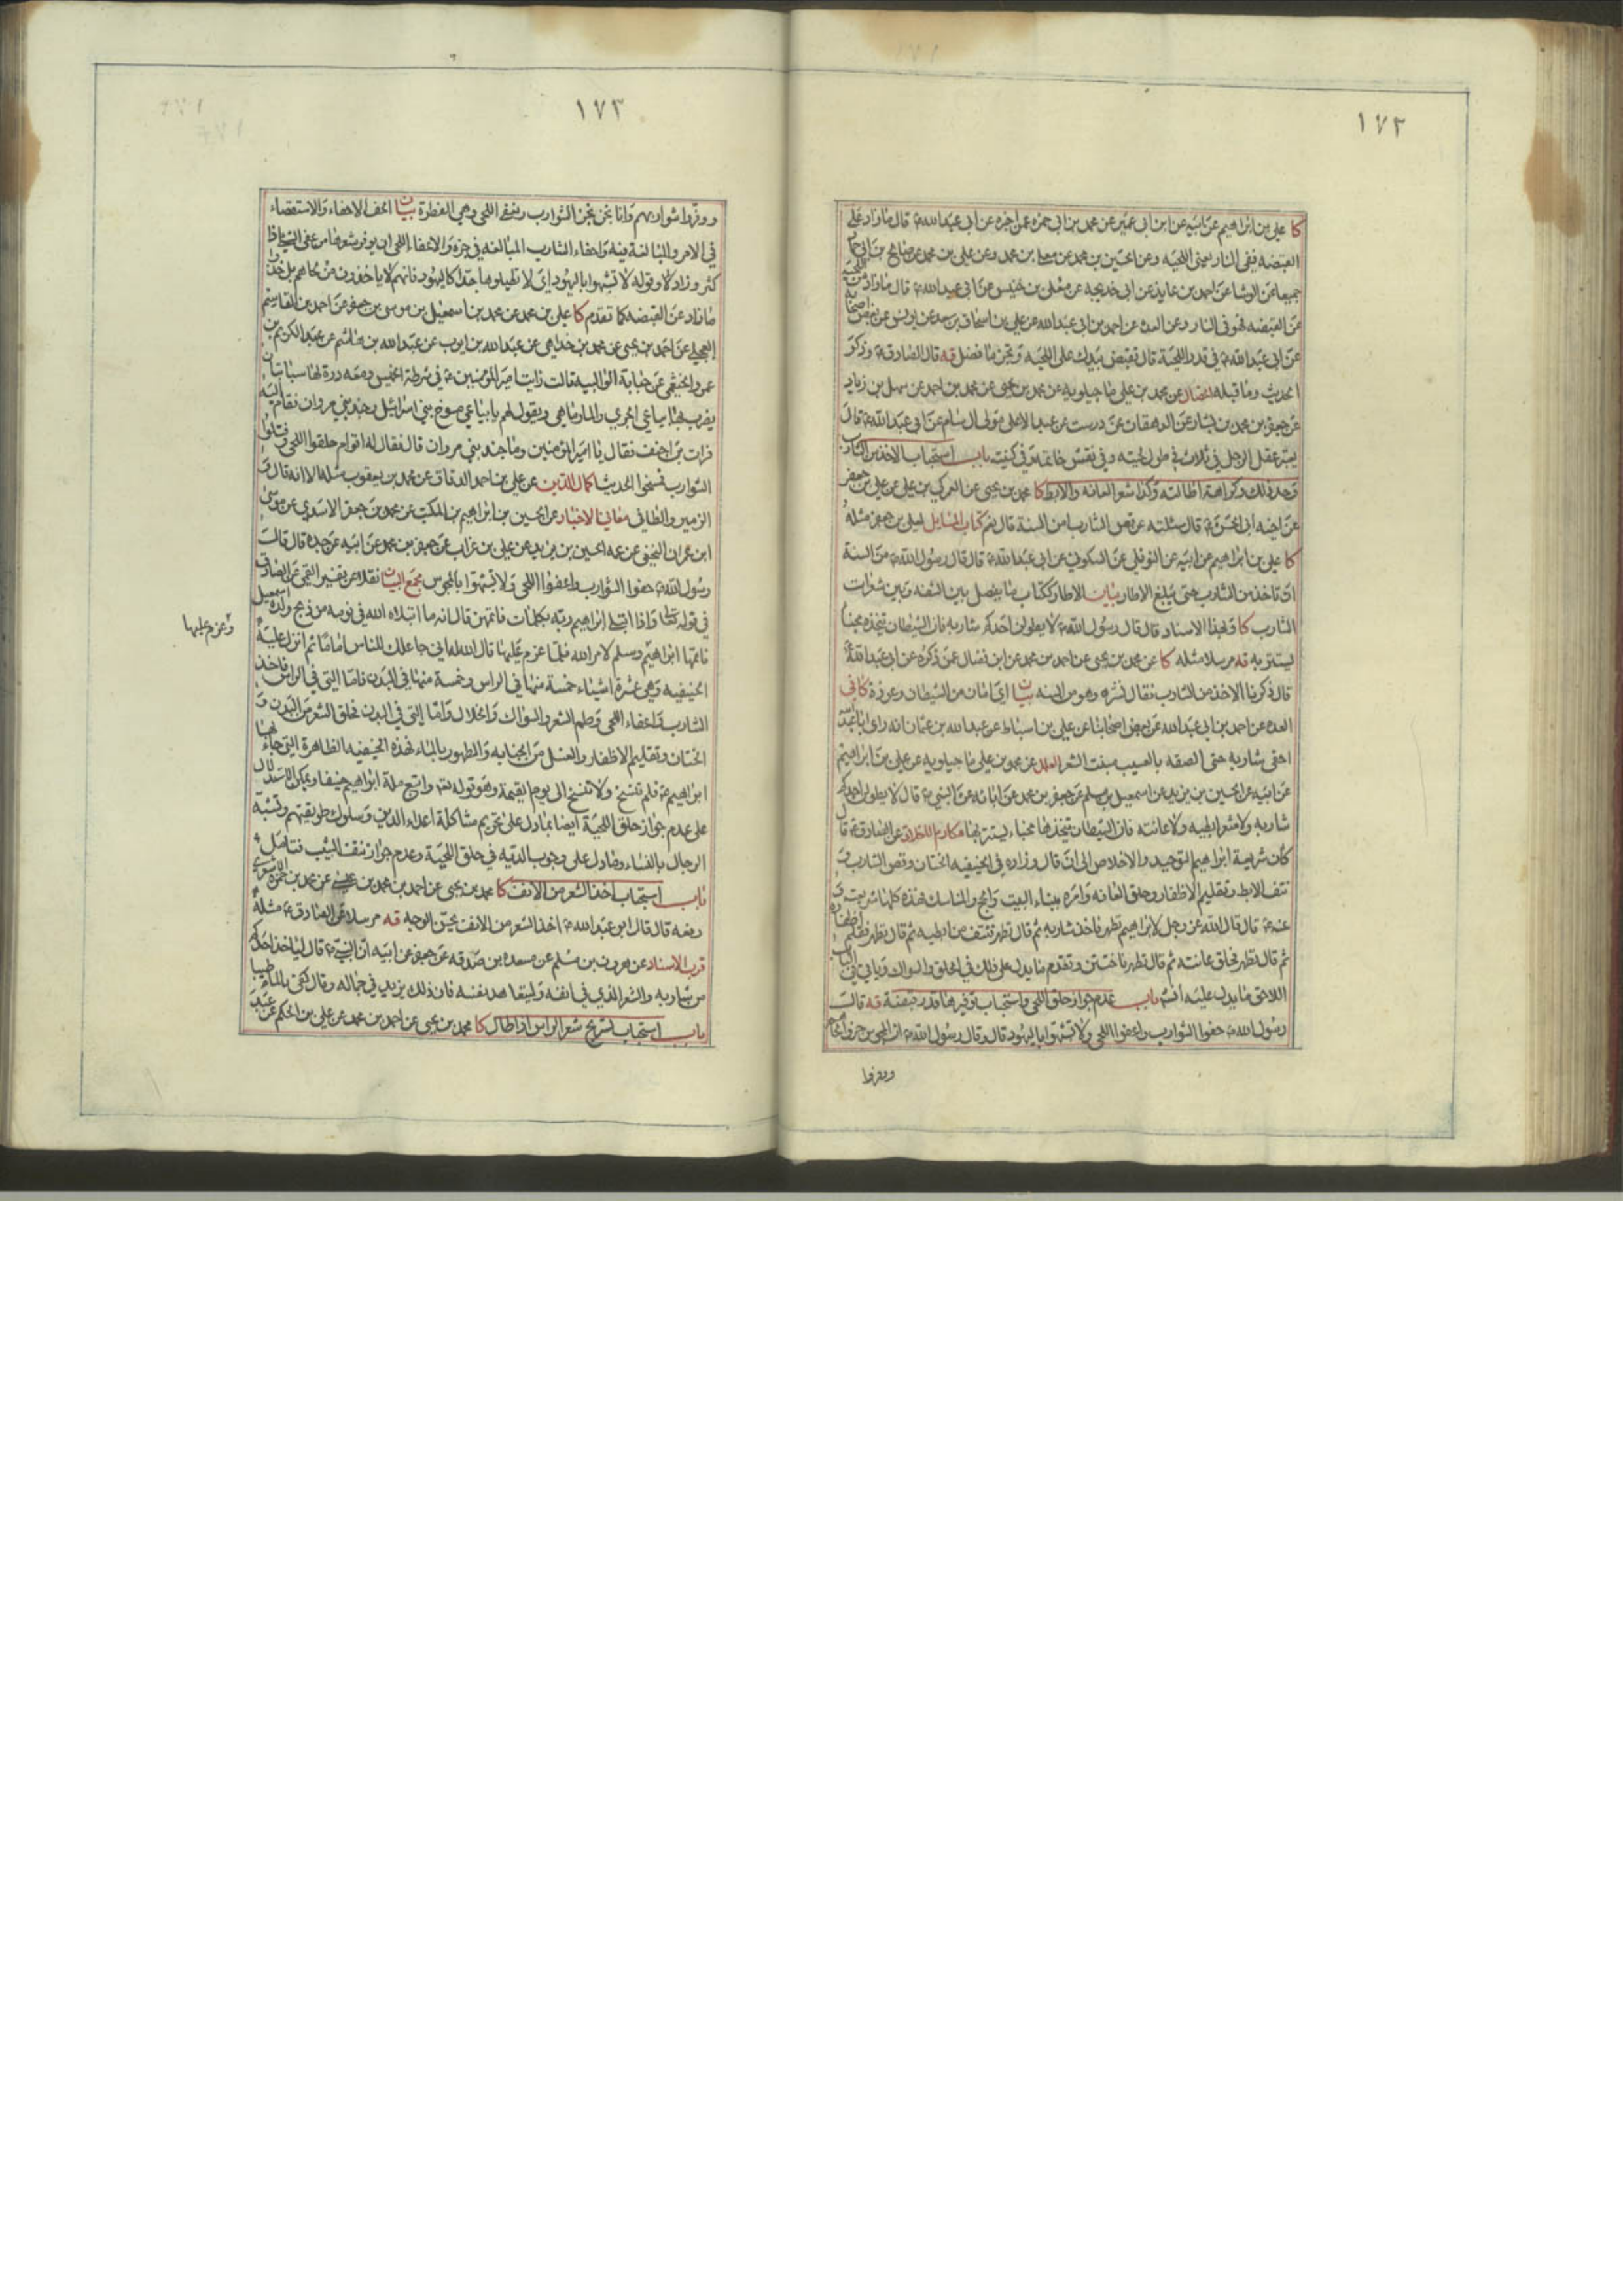 ١٧٢
كا علي بن ابراهيم عن ابيه عن ابن ابي عمير عن محمد بن ابي حمزه عمن اخبره عن ابي عبدالله ع قال ما زاد على
القبضه ففي النار يعني اللحيه وعن الحسين بن محمد عن معلى بن محمد وعن علي بن محمد عن صالح بن ابي حماد
جميعا عن الوشا عن احمد بن عايذ عن ابي خديجه عن معلى بن خنيس عن ابي عبدالله ع قال ما زاد من اللحية
عن القبضه فهو في النار وعن العدة عن احمد بن ابي عبدالله عن علي بن اسحاق بن سعد عن يونس عن بعض اصحابه
عن ابي عبدالله ع في قدر اللحية قال تقبض بيدك على اللحيه وتجز ما فضل قه قال الصادق ع وذكر
الحديث وما قبله الخصال عن محمد بن علي ماجيلويه عن محمد بن يحيى عن محمد بن احمد عن سهل بن زياد
عن جعفر بن محمد بن بشار عن الدهقان عن درست عن عبد الاعلى مولى ال سام عن ابي عبدالله ع قال
يعتبر عقل الرجل في ثلاث في طول لحيته وفي نقش خاتمه وفي كنيته باب استحباب الاخذ من الشارب
وحد ذلك وكراهة اطالته وكذا شعر العانه والابط كا محمد بن يحيى عن العمركي بن علي عن علي بن جعفر
عن اخيه ابي الحسن ع قال سئلته عن قص الشارب امن السنة قال نعم كتاب المسايل لعلي بن جعفر مثله
كا علي بن ابراهيم عن ابيه عن النوفلي عن السكوني عن ابي عبدالله ع قال قال رسول الله ص من السنة
ان تاخذ من الشارب حتى يبلغ الاطار بيان الاطار ككتاب ما يفصل بين الشفه وبين شعرات
الشارب كا وبهذا الاسناد قال قال رسول الله ص لا يطولن احدكم شاربه فان الشيطان يتخذه مخبئا
يستتر به قه مرسلا مثله كا عن محمد بن يحيى عن احمد بن محمد عن ابن فضال عمن ذكره عن ابي عبدالله ع
قال ذكرنا الاخذ من الشارب فقال نشره وهو من السنه بيان اي امان من الشيطان وعوذة كا في
العدة عن احمد بن ابي عبدالله عن بعض اصحابنا عن علي بن اسباط عن عبدالله بن عثمان انه راى ابا عبدالله
احفى شاربه حتى الصقه بالعسيب منبت الشعر العلل عن محمد بن علي ماجيلويه عن علي بن ابراهيم
عن ابيه عن الحسين بن يزيد عن اسمعيل بن مسلم عن جعفر بن محمد عن ابائه عن النبي ص قال لا يطولن احدكم
شاربه ولا شعر ابطيه ولا عانته فان الشيطان يتخذها مخباء يستتر بها مكارم الاخلاق عن الصادق ع قال
كان شريعة ابراهيم التوحيد والاخلاص الى ان قال وزاده في الحنيفيه الختان وقص الشارب و
نتف الابط وتقليم الاظفار وحلق العانه وامره ببناء البيت والحج والمناسك فهذه كلها شريعته و
عنه ع قال قال الله عز وجل لابراهيم تطهر فاخذ شاربه ثم قال تطهر فنتف من ابطيه ثم قال تطهر فقلم اظفاره
ثم قال تطهر فحلق عانته ثم قال تطهر فاختتن وتقدم ما يدل على ذلك في الحلق والسواك وياتي في الباب
اللاحق ما يدل عليه انشا باب عدم جواز حلق اللحى واستحباب توفيرها قدر قبضة قه قال
رسول الله ص حفوا الشوارب واعفوا اللحى ولا تشبهوا باليهود قال وقال رسول الله ص ان المجوس جزوا لحاهم
ووفروا
١٧٣
ووفروا شواربهم وانا نحن نجز الشوارب ونعفي اللحى وهي الفطرة بيان الحف الاحفاء والاستقصاء
في الامر والمبالغة فيه واحفاء الشارب المبالغه في جزه والاعفاء اللحى ان يوفر شعرها من عفى الشئ اذا
كثر وزاد وقوله لا تشبهوا باليهود اي لا تطيلوها جدا كاليهود فانهم لا ياخذون من لحاهم بل خذوا
ما زاد عن القبضه كما تقدم كا علي بن محمد عن محمد بن اسمعيل بن موسى بن جعفر عن احمد بن القاسم
العجلي عن احمد بن يحيى عن محمد بن خداهي عن عبدالله بن ايوب عن عبدالله بن هاشم عن عبد الكريم بن
عمرو الخثعمي عن حبابة الوالبيه قالت رايت امير المؤمنين ع في شرطة الخميس ومعه درة لها سبابتان
يضرب بها بياعي الجري والمارماهي ويقول لهم يا بياعي مسوخ بني اسرائيل وجند بني مروان فقام اليه
فرات بن احنف فقال يا امير المؤمنين وما جند بني مروان قال فقال له اقوام حلقوا اللحى وفتلوا
الشوارب فمسخوا الحديث اكمال الدين عن علي بن احمد الدقاق عن محمد بن يعقوب مثله الا انه قال و
الزمير والطافي معاني الاخبار عن الحسين بن ابراهيم بن المكتب عن محمد بن جعفر الاسدي عن موسى
ابن عمران النخعي عن عمه الحسين بن يزيد عن علي بن غراب عن جعفر بن محمد عن ابيه عن جده قال قال
رسول الله ص حفوا الشوارب واعفوا اللحى ولا تشبهوا بالمجوس مجمع البيان نقلا عن تفسير القمي عن الصادق
في قوله تعالى واذا ابتلى ابراهيم ربه بكلمات فاتمهن قال انه ما ابتلاه الله في نومه من ذبح ولده اسمعيل
فاتمها ابراهيم وسلم لامر الله فلما عزم عليها قال الله له اني جاعلك للناس اماما ثم انزل عليه
وعزم عليها
الحنيفيه وهي عشرة اشياء خمسة منها في الراس وخمسة منها في البدن فاما التي في الراس فاخذ
الشارب واعفاء اللحى وطم الشعر والسواك والخلال واما التي في البدن فحلق الشعر من البدن و
الختان وتقليم الاظفار والغسل من الجنابه والطهور بالماء فهذه الحنيفيه الظاهرة التي جاء بها
ابراهيم ع فلم تنسخ ولا تنسخ الى يوم القيمة وهو قوله تعالى واتبع ملة ابراهيم حنيفا ويمكن الاستدلال
على عدم جواز حلق اللحية ايضا بما دل على تحريم مشاكلة اعداء الدين وسلوك طريقتهم وتشبه
الرجال بالنساء وما دل على وجوب الديه في حلق اللحية وعدم جواز نتف الشيب فتامل
باب استحباب اخذ الشعر من الانف كا محمد بن يحيى عن احمد بن محمد بن عيسى عن محمد بن حمزه الاشعري
رفعه قال قال ابو عبدالله ع اخذ الشعر من الانف يحسن الوجه قه مرسلا عن الصادق ع مثله
قرب الاسناد عن هرون بن مسلم عن مسعدة بن صدقه عن جعفر عن ابيه ان النبي ص قال لياخذ احدكم
من شاربه والشعر الذي في انفه وليتعاهد نفسه فان ذلك يزيد في جماله وقال كفى بالماء طيبا
باب استحباب تسريح شعر الراس اذا طال كا محمد بن يحيى عن احمد بن محمد عن علي بن الحكم عن عبد